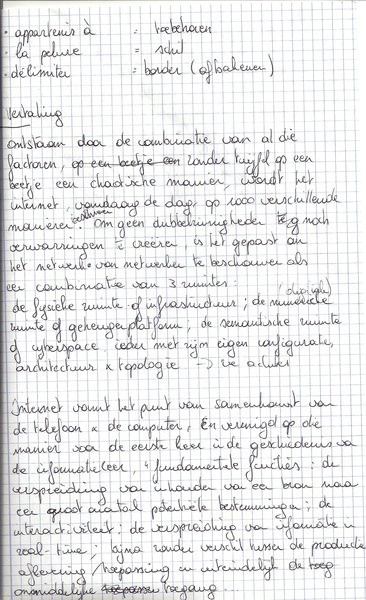 • appartenir à = toebehoren
• la pelure = schil
• délimiter = border (afbakenen)
Vertaling
ontstaan door de combinatie van al die
factoren, op een beetje een zonder twijfel op een
beetje een chaotische manier, wordt het
internet, vandaag de dag, op 1000 verschillende
manieren beschreven. Om geen dubbelzinnigheden noch
verwarringen te creëren, is het gepast om
het netwerk van netwerken te beschouwen als
een combinatie van 3 ruimtes:
de fysieke ruimte of infrastructuur; de numerieke (digitale)
ruimte of geheugenplatform; de semantische ruimte
of cyberspace, ieder met zijn eigen configuratie,
architectuur x topologie →
Internet vormt het punt van samenkomst van
de telefoon x de computer, En verenigd op die
manier voor de eerste keer in de geschiedenis van
de informatieleer, 4 fundamentele functies: de
verspreiding van inhouden van een bron naar
een groot aantal potentiële bestemmingen; de
interactiviteit; de verspreiding van informatie in
real-time, bijna zonder verschil tussen de productie
aflevering / toepassing en uiteindelijk de
onmiddellijke toegang ...